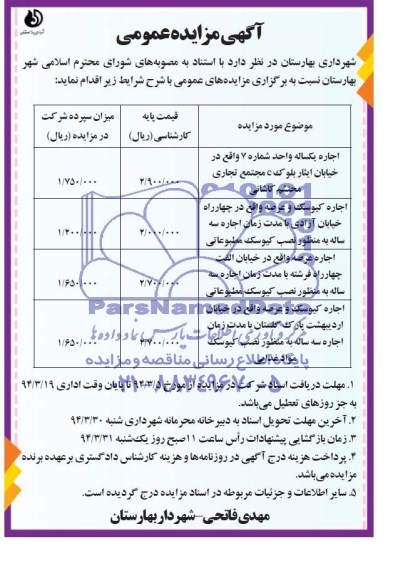 آگهی مزایده عمومی
شهرداری بهارستان در نظر دارد با استناد به مصوبه‌های شورای محترم اسلامی شهر
بهارستان نسبت به برگزاری مزایده‌های عمومی با شرح شرایط زیر اقدام نماید:
موضوع مورد مزایده
قیمت پایه کارشناسی (ریال)
میزان سپرده شرکت در مزایده (ریال)
اجاره یکساله واحد شماره ۷ واقع در
خیابان ایثار بلوک c مجتمع تجاری
محتشم کاشانی
۲/۹۰۰/۰۰۰
۱/۷۵۰/۰۰۰
اجاره کیوسک و عرصه واقع در چهارراه
خیابان آزادی با مدت زمان اجاره سه
ساله به منظور نصب کیوسک مطبوعاتی
۲/۰۰۰/۰۰۰
۱/۲۰۰/۰۰۰
اجاره عرصه واقع در خیابان الفت
چهارراه فرشته با مدت زمان اجاره سه
ساله به منظور نصب کیوسک مطبوعاتی
۲/۷۰۰/۰۰۰
۱/۶۵۰/۰۰۰
اجاره کیوسک و عرصه واقع در خیابان
اردیبهشت پارک گلستان با مدت زمان
اجاره سه ساله به منظور نصب کیوسک
مواد غذایی
۲/۷۰۰/۰۰۰
۱/۶۵۰/۰۰۰
ParsNamadData
۱. مهلت دریافت اسناد شرکت در مزایده از مورخ ۹۴/۳/۵ تا پایان وقت اداری ۹۴/۳/۱۹
به جز روزهای تعطیل می‌باشد.
۲. آخرین مهلت تحویل اسناد به دبیرخانه محرمانه شهرداری شنبه ۹۴/۳/۳۰
۳. زمان بازگشایی پیشنهادات رأس ساعت ۱۱صبح روز یک‌شنبه ۹۴/۳/۳۱
۴. پرداخت هزینه درج آگهی در روزنامه‌ها و هزینه کارشناس دادگستری برعهده برنده
مزایده می‌باشد.
۵. سایر اطلاعات و جزئیات مربوطه در اسناد مزایده درج گردیده است.
مهدی فاتحی-شهردار بهارستان